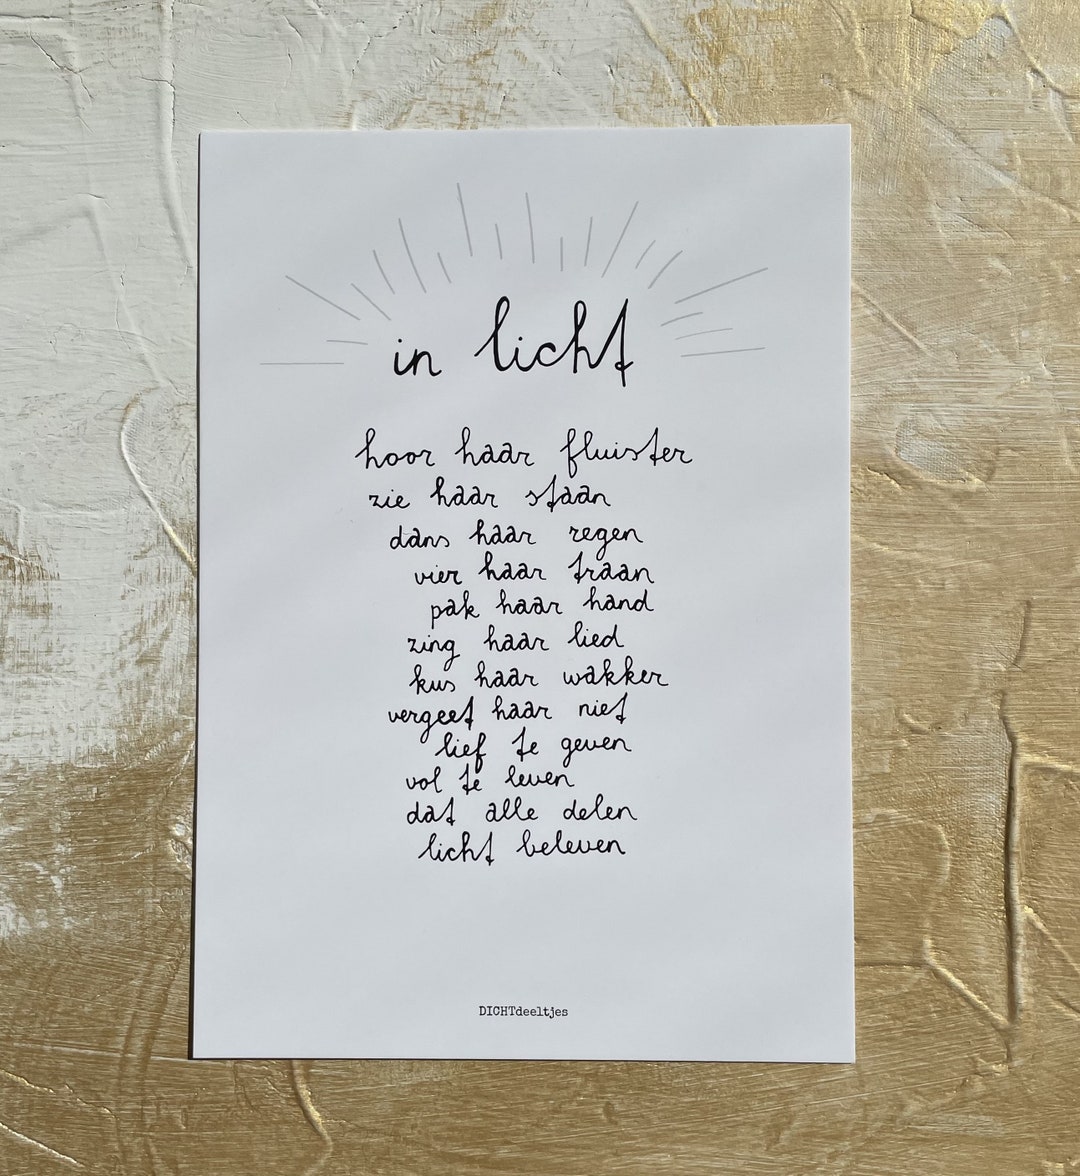 in licht
hoor haar fluister
zie haar staan
dans haar regen
vier haar traan
pak haar hand
zing haar lied
kus haar wakker
vergeet haar niet
lief te geven
vol te leven
dat alle delen
licht beleven
DICHTdeeltjes